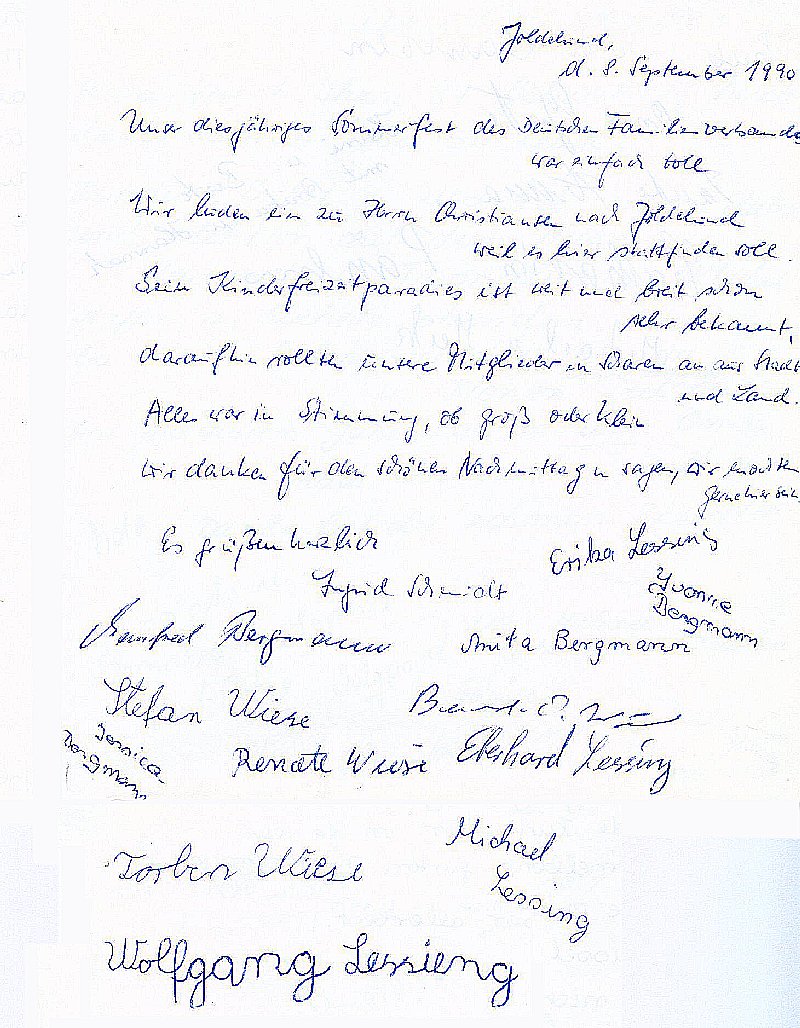 Joldelund,
d. 8. September 1990
Unser diesjähriges Sommerfest des Deutschen Familienverbandes
war einfach toll
Wir luden ein zu Herrn Christiansen nach Joldelund
weil es hier stattfinden soll.
Sein Kinderfreizeitparadies ist weit und breit schon
sehr bekannt,
daraufhin rollten unsere Mitglieder in Scharen an aus Stadt
und Land.
Alles war in Stimmung, ob groß oder klein
wir danken für den schönen Nachmittag u sagen, wir möchten
gerne hier sein.
Es grüßen herzlich
Erika Lessing
Ingrid Schmidt
Yvonne
Bergmann
Manfred Bergmann
Anita Bergmann
Stefan Wiese
Jessica
Bergmann
Renate Wiese
Eberhard Lessing
Torben Wiese
Michael
Lessing
Wolfgang Lessieng